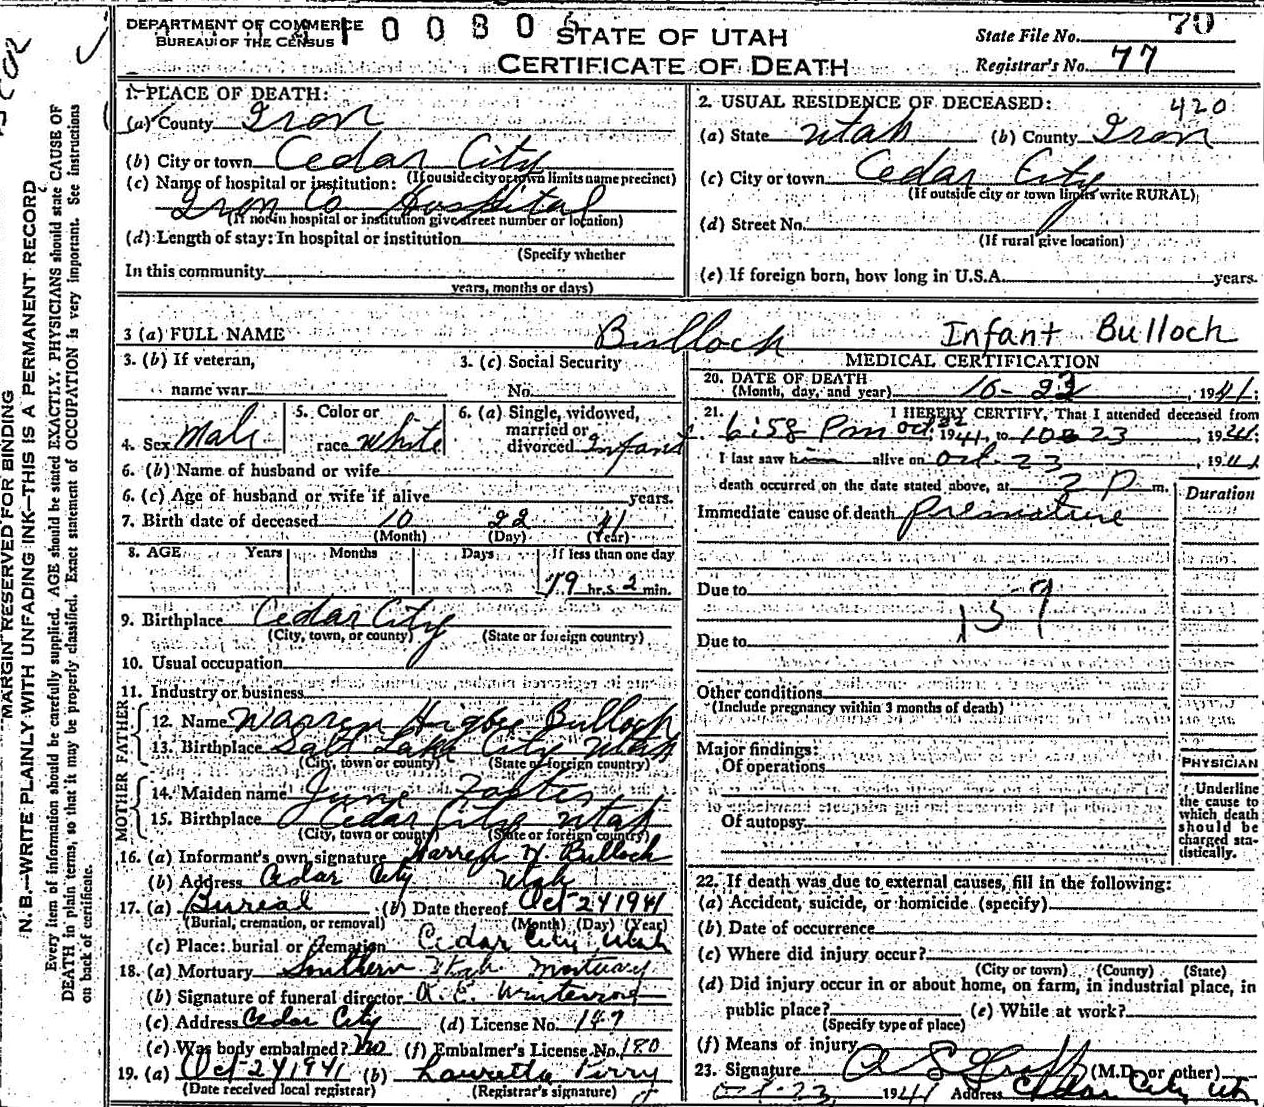 DEPARTMENT OF COMMERCE
BUREAU OF THE CENSUS
STATE OF UTAH
CERTIFICATE OF DEATH
State File No. 70
Registrar's No. 77
MARGIN RESERVED FOR BINDING
N. B.—WRITE PLAINLY WITH UNFADING INK—THIS IS A PERMANENT RECORD
Every item of information should be carefully supplied. AGE should be stated EXACTLY. PHYSICIANS should state CAUSE OF
DEATH in plain terms, so that it may be properly classified. Exact statement of OCCUPATION is very important. See instructions
on back of certificate.
1. PLACE OF DEATH:
(a) County Iron
(b) City or town Cedar City
(If outside city or town limits name precinct)
(c) Name of hospital or institution:
Iron Co Hospital
(If not in hospital or institution give street number or location)
(d) Length of stay: In hospital or institution
(Specify whether
In this community
years, months or days)
2. USUAL RESIDENCE OF DECEASED: 420
(a) State Utah (b) County Iron
(c) City or town Cedar City
(If outside city or town limits write RURAL)
(d) Street No.
(If rural give location)
(e) If foreign born, how long in U.S.A. years.
3 (a) FULL NAME Bulloch Infant Bulloch
3. (b) If veteran,
name war
3. (c) Social Security
No.
4. Sex Male
5. Color or
race White
6. (a) Single, widowed,
married or
divorced Infant
6. (b) Name of husband or wife
6. (c) Age of husband or wife if alive years.
7. Birth date of deceased 10 22 41
(Month) (Day) (Year)
8. AGE Years Months Days If less than one day
19 hrs. 2 min.
9. Birthplace Cedar City
(City, town, or county) (State or foreign country)
10. Usual occupation
11. Industry or business
FATHER
12. Name Warren Higbee Bulloch
13. Birthplace Salt Lake City Utah
(City, town or county) (State or foreign country)
MOTHER
14. Maiden name June
15. Birthplace Cedar City Utah
(City, town or county) (State or foreign country)
16. (a) Informant's own signature Warren H Bulloch
(b) Address Cedar City Utah
17. (a) Bureal (b) Date thereof Oct 24 1941
(Burial, cremation, or removal) (Month) (Day) (Year)
(c) Place: burial or cremation Cedar City Utah
18. (a) Mortuary Southern Utah Mortuary
(b) Signature of funeral director
(c) Address Cedar City (d) License No. 147
(e) Was body embalmed? No (f) Embalmer's License No. 180
19. (a) Oct 24 1941 (b) Lauretta Perry
(Date received local registrar) (Registrar's signature)
MEDICAL CERTIFICATION
20. DATE OF DEATH
(Month, day, and year) 10-23, 1941;
21. I HEREBY CERTIFY, That I attended deceased from
6:58 Pm Oct 22, 1941, to 23, 1941;
I last saw him alive on Oct. 23, 1941
death occurred on the date stated above, at 2 P m.
Immediate cause of death Premature
Duration
Due to
159
Due to
Other conditions
(Include pregnancy within 3 months of death)
Major findings:
Of operations
Of autopsy
PHYSICIAN
Underline
the cause to
which death
should be
charged sta-
tistically.
22. If death was due to external causes, fill in the following:
(a) Accident, suicide, or homicide (specify)
(b) Date of occurrence
(c) Where did injury occur?
(City or town) (County) (State)
(d) Did injury occur in or about home, on farm, in industrial place, in
public place? (e) While at work?
(Specify type of place)
(f) Means of injury
23. Signature (M.D. or other)
Oct-23 1941 Address Cedar City Ut